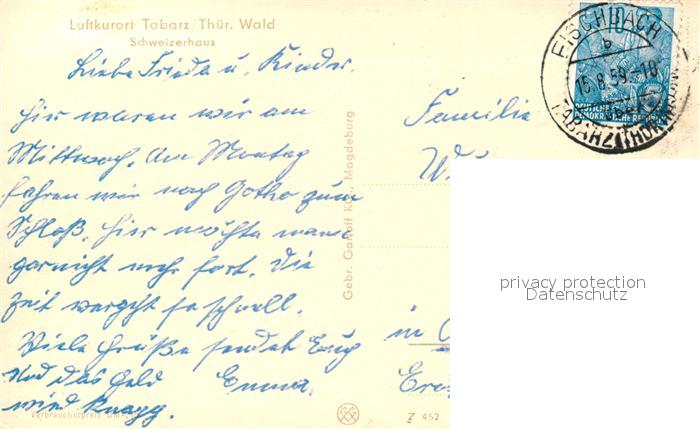 Luftkurort Tabarz/Thür. Wald
Schweizerhaus
Liebe Frieda u. Kinder.
Hier waren wir am
Mittwoch. Am Montag
fahren wir nach Gotha zum
Schloß. Hier möchte man
garnicht mehr fort. Die
Zeit vergeht so schnell.
Viele Grüße sendet Euch
Und das Geld Emma.
wird knapp.
Verbraucherpreis DM
Gebr. Garloff KG., Magdeburg
Z 452
Familie
in
FISCHBACH
b
15.8.59.-10
TABARZ (THÜR
10
DEUTSCHE
DEMOKRATISCHE REPUBLIK
privacy protection
Datenschutz